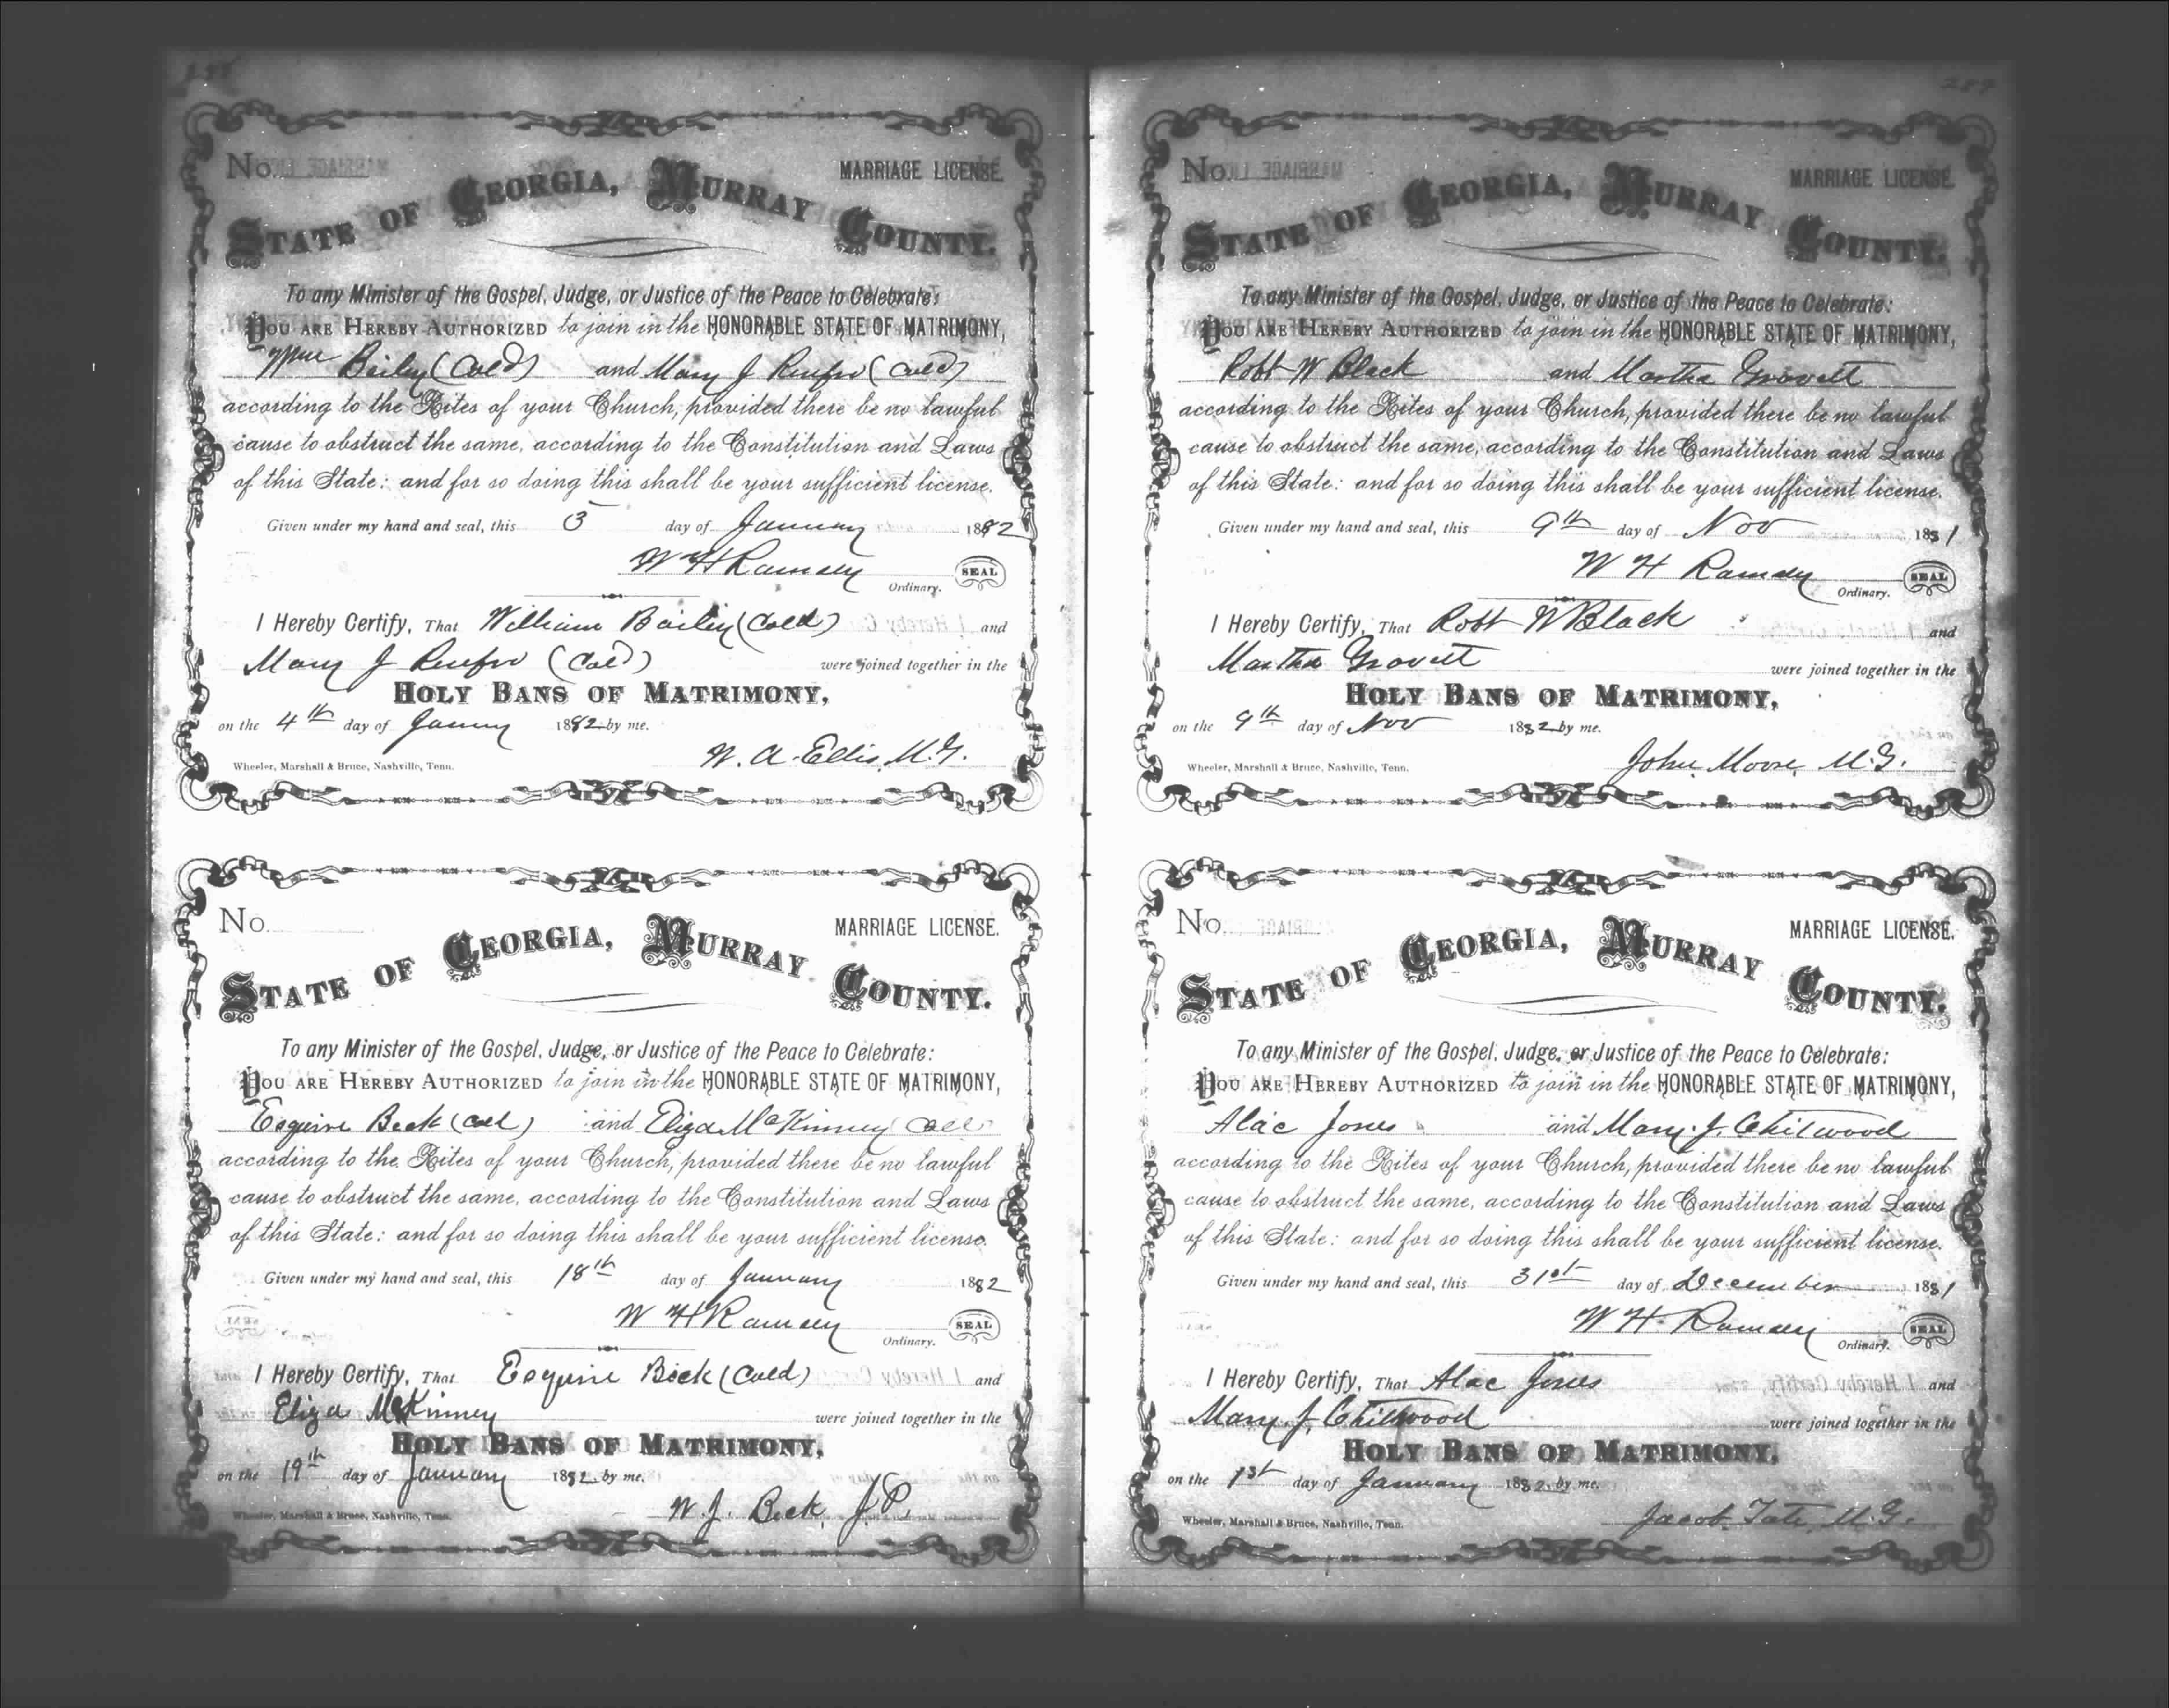 No. MARRIAGE LICENSE.
STATE OF GEORGIA, MURRAY COUNTY.
To any Minister of the Gospel, Judge, or Justice of the Peace to Celebrate:
YOU ARE HEREBY AUTHORIZED to join in the HONORABLE STATE OF MATRIMONY,
Wm Bailey (Cold) and Mary J Renfro (Cold)
according to the Rites of your Church, provided there be no lawful
cause to obstruct the same, according to the Constitution and Laws
of this State: and for so doing this shall be your sufficient license.
Given under my hand and seal, this day of January 1882
W H Ramsey
Ordinary. SEAL
I Hereby Certify, That William Bailey (Cold) and
Mary J Renfro (Cold) were joined together in the
HOLY BANS OF MATRIMONY,
on the 4th day of January 1882 by me.
W. A. Ellis, M.G.
Wheeler, Marshall & Bruce, Nashville, Tenn.
No. MARRIAGE LICENSE.
STATE OF GEORGIA, MURRAY COUNTY.
To any Minister of the Gospel, Judge, or Justice of the Peace to Celebrate:
YOU ARE HEREBY AUTHORIZED to join in the HONORABLE STATE OF MATRIMONY,
Esquire Beck (Cold) and Eliza McKinney Cold
according to the Rites of your Church, provided there be no lawful
cause to obstruct the same, according to the Constitution and Laws
of this State: and for so doing this shall be your sufficient license.
Given under my hand and seal, this 18th day of January 1882
W H Ramsey
Ordinary. SEAL
I Hereby Certify, That Esquire Beck (Cold) and
Eliza McKinney were joined together in the
HOLY BANS OF MATRIMONY,
on the 19th day of January 1882 by me.
W. J. Beck, J.P.
Wheeler, Marshall & Bruce, Nashville, Tenn.
289
No. MARRIAGE LICENSE.
STATE OF GEORGIA, MURRAY COUNTY.
To any Minister of the Gospel, Judge, or Justice of the Peace to Celebrate:
YOU ARE HEREBY AUTHORIZED to join in the HONORABLE STATE OF MATRIMONY,
Robt W Black and Martha Gravett
according to the Rites of your Church, provided there be no lawful
cause to obstruct the same, according to the Constitution and Laws
of this State: and for so doing this shall be your sufficient license.
Given under my hand and seal, this 9th day of Nov 1881
W H Ramsey
Ordinary. SEAL
I Hereby Certify, That Robt W Black and
Martha Gravett were joined together in the
HOLY BANS OF MATRIMONY,
on the 9th day of Nov 1882 by me.
John Moore, M.G.
Wheeler, Marshall & Bruce, Nashville, Tenn.
No. MARRIAGE LICENSE.
STATE OF GEORGIA, MURRAY COUNTY.
To any Minister of the Gospel, Judge, or Justice of the Peace to Celebrate:
YOU ARE HEREBY AUTHORIZED to join in the HONORABLE STATE OF MATRIMONY,
Alac Jones and Mary J. Chitwood
according to the Rites of your Church, provided there be no lawful
cause to obstruct the same, according to the Constitution and Laws
of this State: and for so doing this shall be your sufficient license.
Given under my hand and seal, this 31st day of December 1881
W H Ramsey
Ordinary. SEAL
I Hereby Certify, That Alac Jones and
Mary J. Chitwood were joined together in the
HOLY BANS OF MATRIMONY,
on the 1st day of January 1882 by me.
Jacob Tate, M.G.
Wheeler, Marshall & Bruce, Nashville, Tenn.